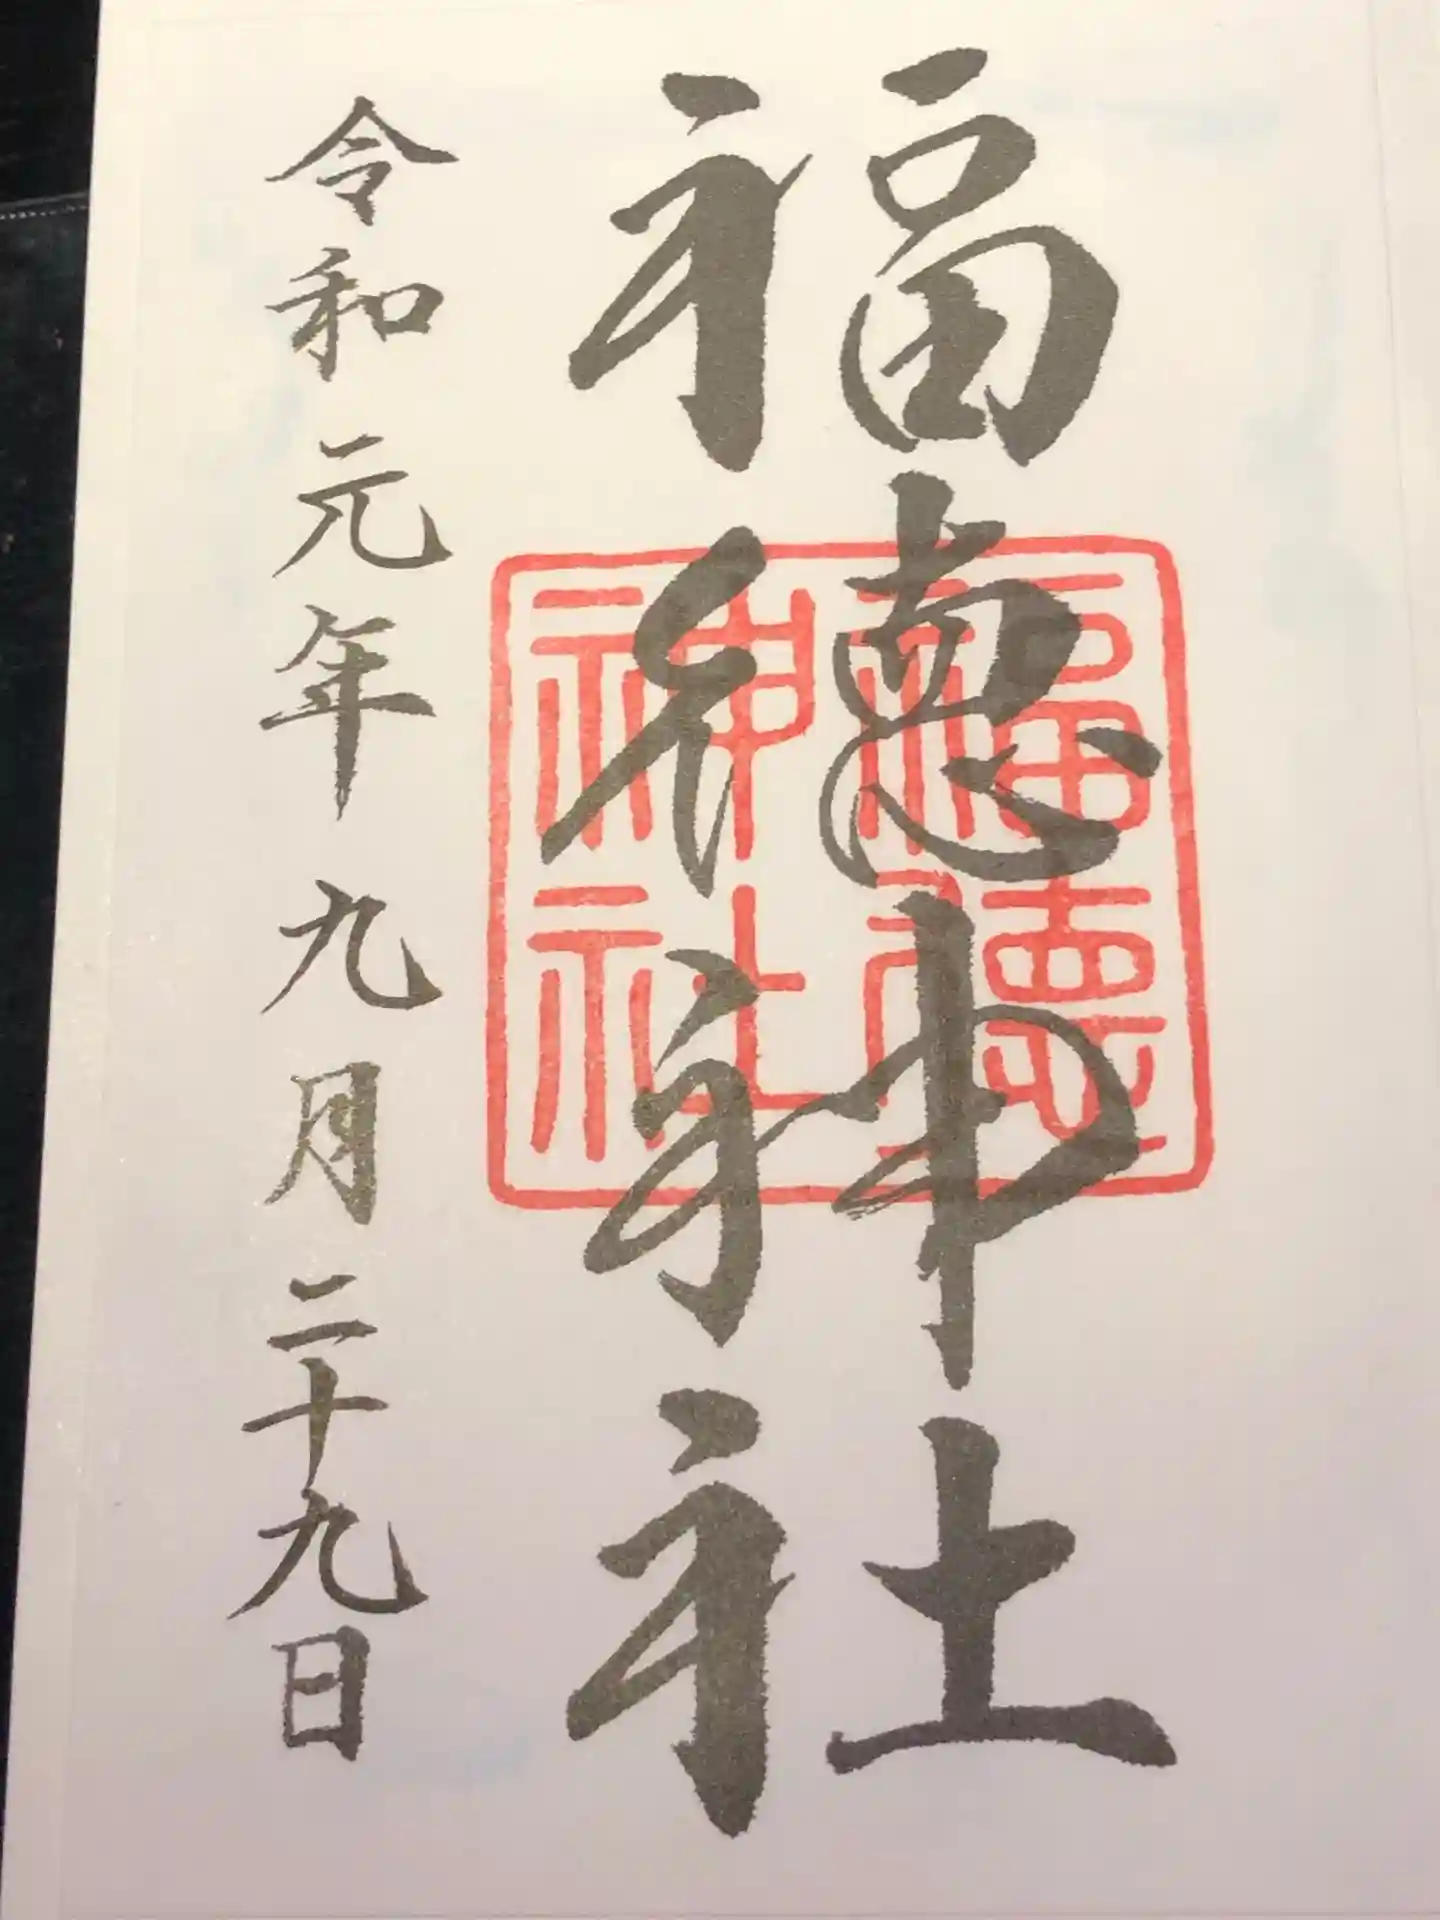 福徳神社
令和元年九月二十九日
福德
神社